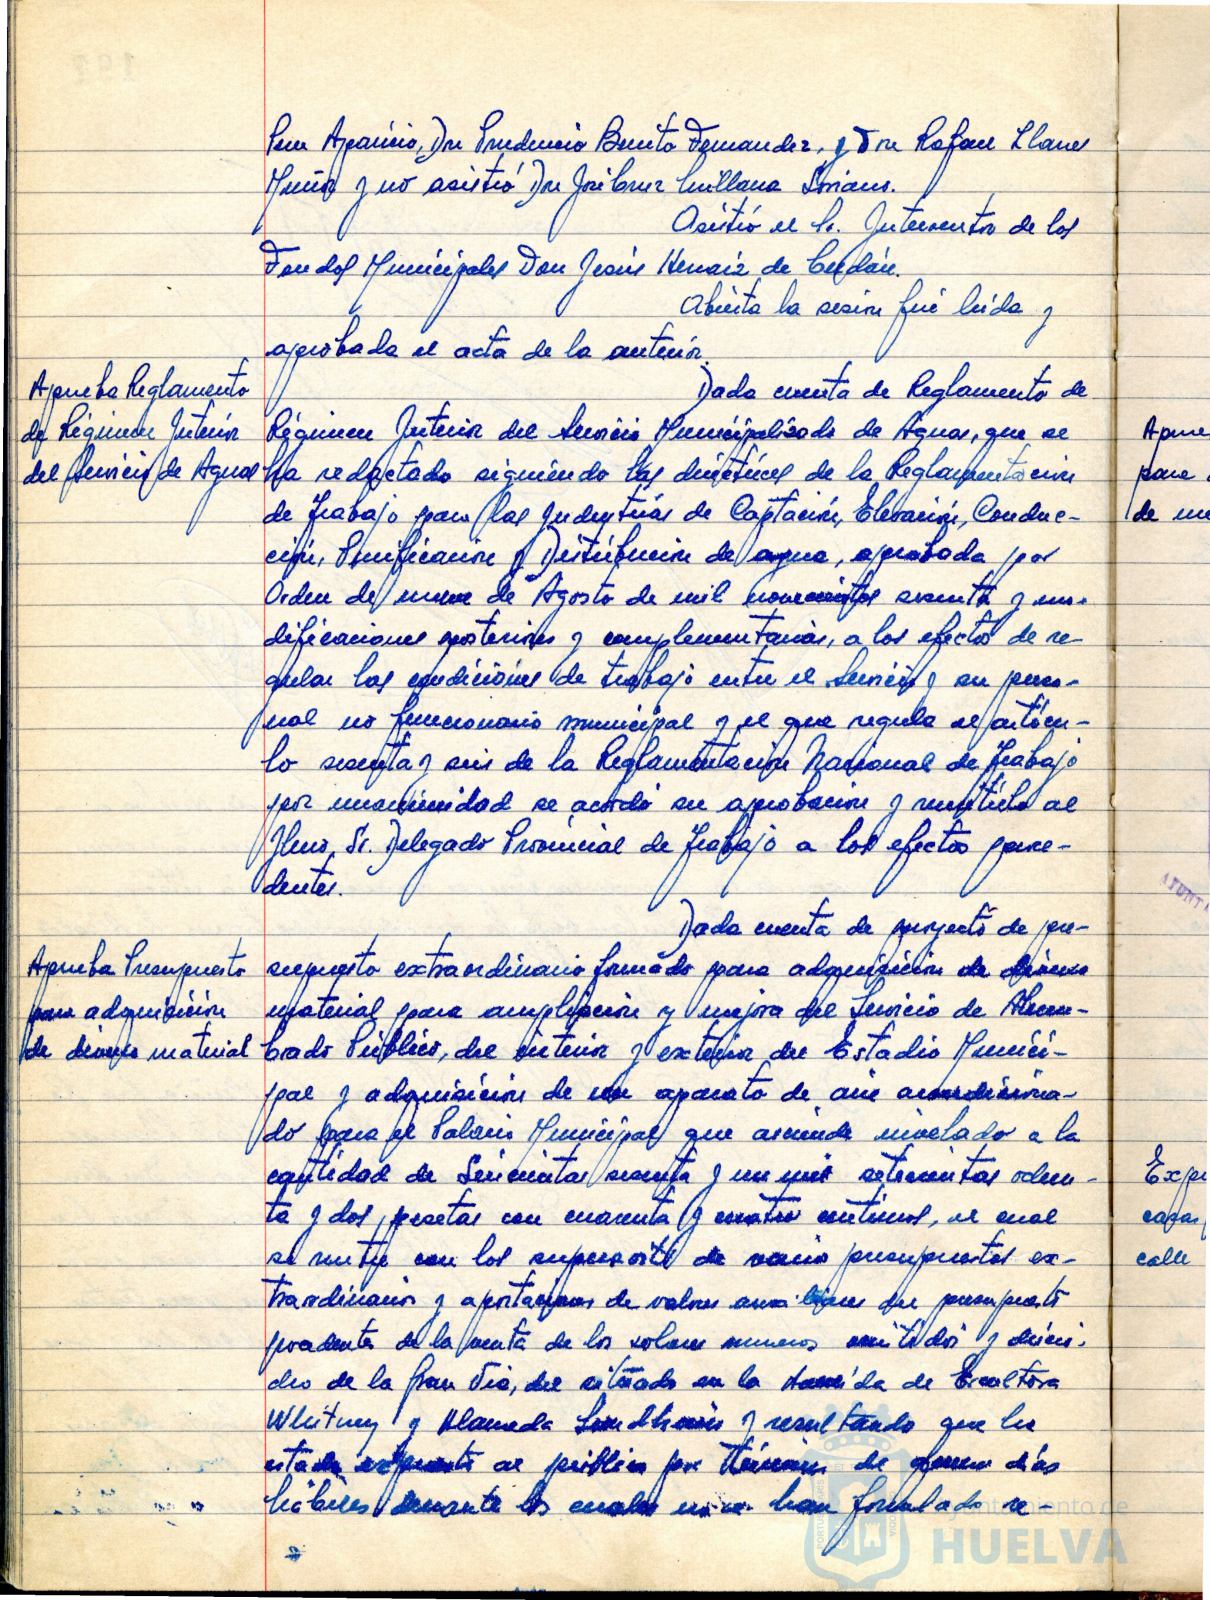 Aparicio, Don Prudencio Benito Fernandez, y Don Rafael Llanes
Muñoz y no asistió Don José Cruz Soriano.
Asistió el Sr. Interventor de los
Fondos Municipales Don Jesús de
Abierta la sesion fué leida y
aprobada el acta de la anterior.
Aprueba Reglamento
de Régimen Interior
del Servicio de Aguas
Dada cuenta de Reglamento de
Régimen Interior del Servicio Municipalizado de Aguas, que se
ha redactado siguiendo las directrices de la Reglamentacion
de Trabajo para las Industrias de Captación, Elevación, Conduc-
ción, Purificacion y Distribucion de agua, aprobada por
Orden de de Agosto de mil novecientos y mo-
dificaciones posteriores y complementarias, a los efectos de re-
gular las condiciones de trabajo entre el Servicio y su perso-
nal no funcionario municipal y el que regula el artícu-
lo sesenta y seis de la Reglamentacion Nacional de Trabajo
por unanimidad se acordó su aprobacion y remitirlo al
Ilmo. Sr. Delegado Provincial de Trabajo a los efectos proce-
dentes.
Aprueba Presupuesto
para adquisición
de diverso material
Dada cuenta de proyecto de pre-
supuesto extraordinario formado para adquisicion de diverso
material para ampliacion y mejora del Servicio de Alum-
brado Público, del interior y exterior del Estadio Munici-
pal y adquisicion de un aparato de aire acondiciona-
do para el Palacio Municipal que asciende nivelado a la
cantidad de Seiscientas sesenta y un mil setecientas ochen-
ta y dos pesetas con cuarenta y cuatro centimos, el cual
se nutre con los superavits de varios presupuestos ex-
traordinarios y aportaciones de valores auxiliares del presupuesto
procedente de la venta de los solares numeros y dieci-
ocho de la Gran Via, del situado en la Avenida de Escultora
Whitney y Alameda Sundheim y resultando que ha
estado expuesto al publico por término de quince dias
habiles durante los cuales no se han formulado re
Ayuntamiento de
HUELVA